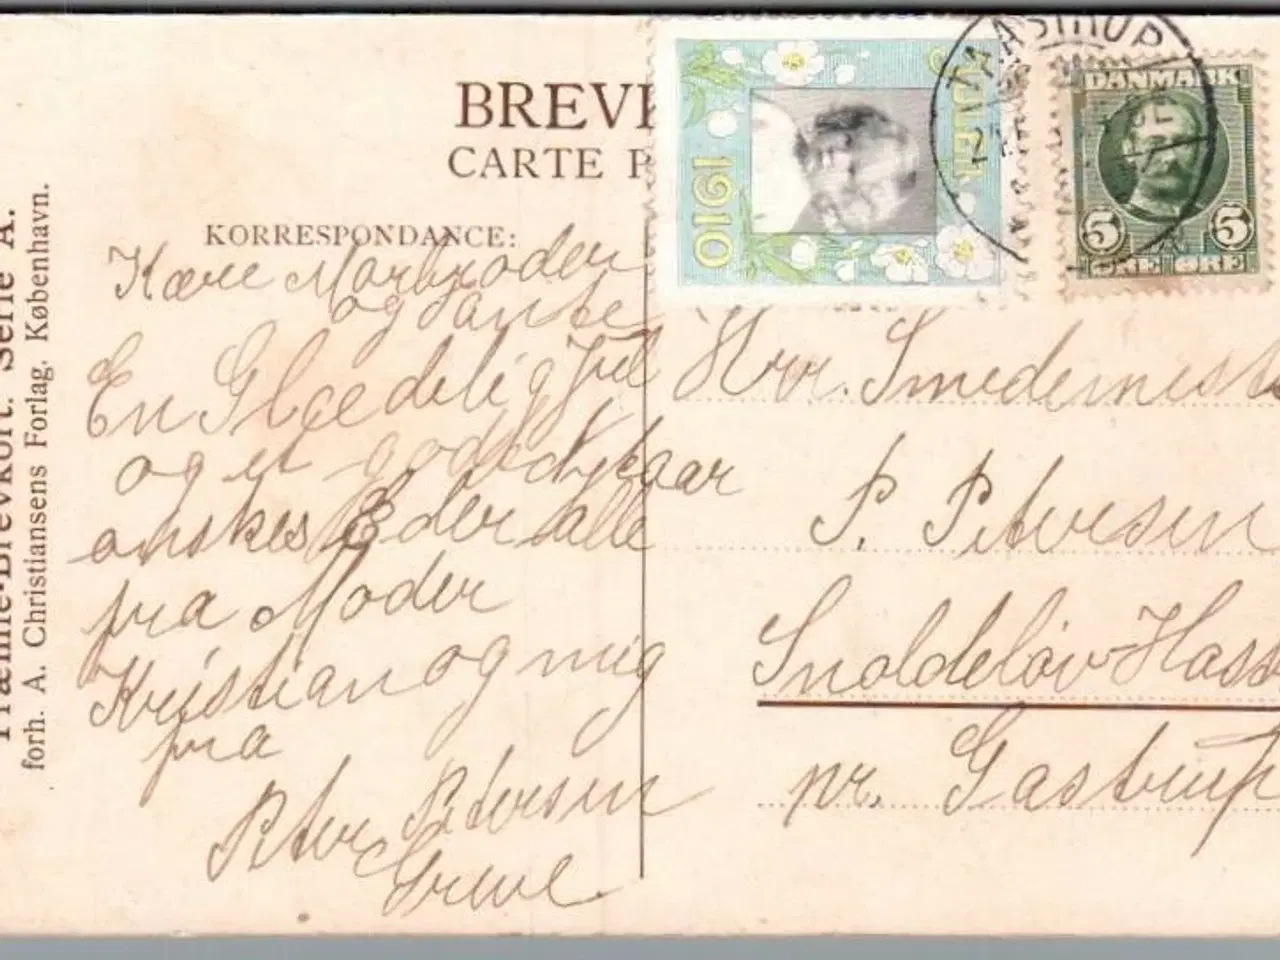 BREVK
CARTE P
KORRESPONDANCE:
Kære Morbroder
og Tante
En Glædelig Jul
og et godt Nytaar
ønskes Eder alle
fra Moder
Kristian og mig
fra
Peter Petersen
Greve
JULEN
1910
TAASTRUP
DANMARK
5 5
ØRE ØRE
Hrr. Smedemest
P. Petersen
Snoldeløv Hast
nr. Gastrup
Præmie-Brevkort. Serie A.
forh. A. Christiansens Forlag, København.